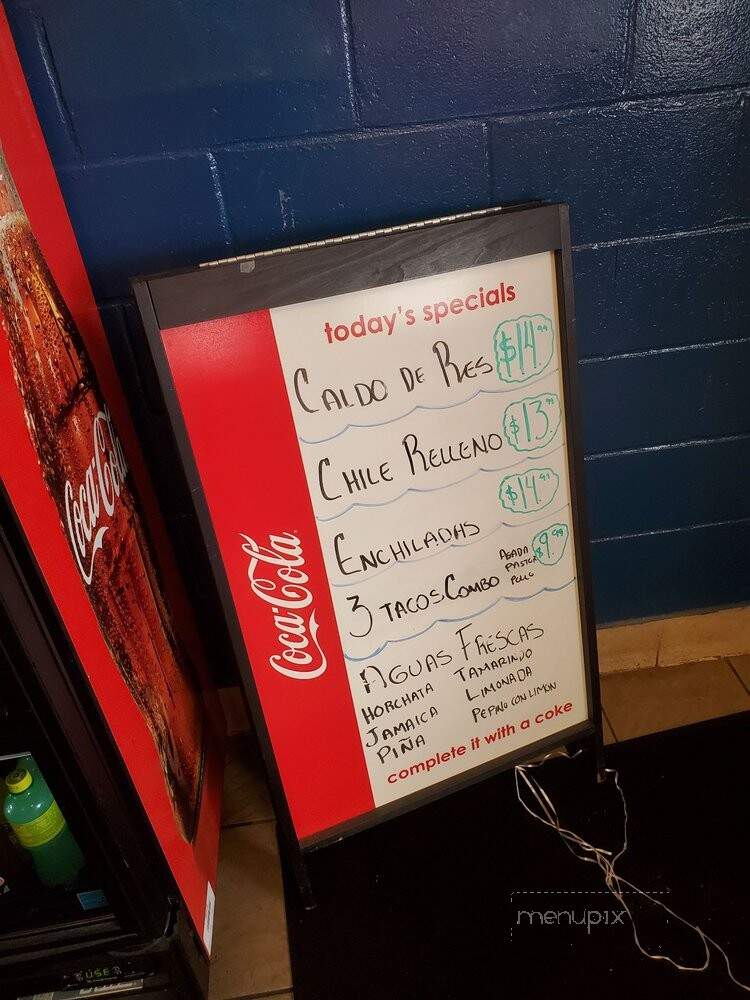 today's specials
CALDO DE RES $14.99
CHILE RELLENO $13.99
ENCHILADAS $14.99
3 TACOS COMBO ASADA PASTOR POLLO $9.99
AGUAS FRESCAS
HORCHATA TAMARINDO
JAMAICA LIMONADA
PIÑA PEPINO CON LIMON
complete it with a coke
Coca-Cola
Coca-Cola
menupix